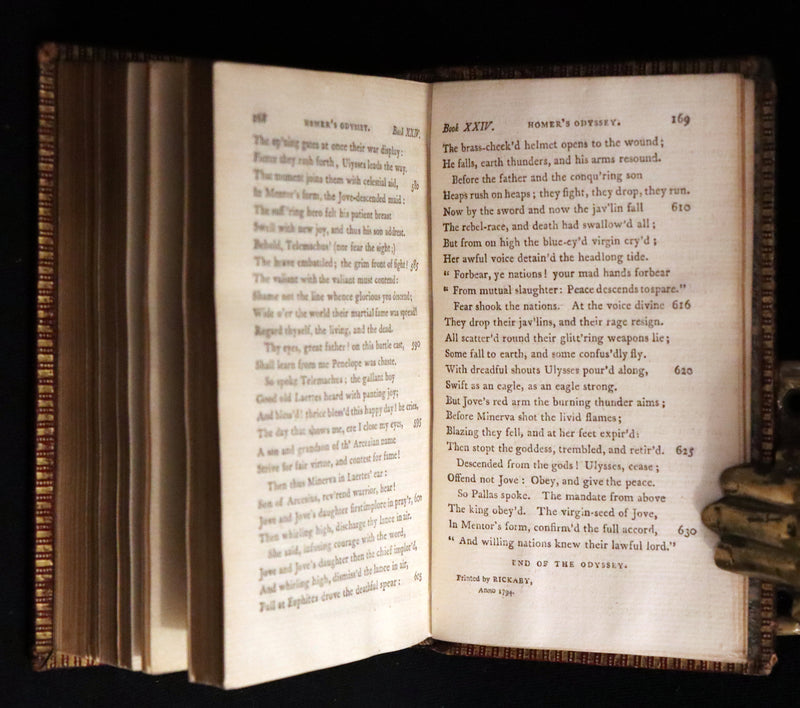 168 HOMER'S ODYSSEY. Book XXIV.
The op'ning gates at once their war display:
Fierce they rush forth, Ulysses leads the way.
That moment joins them with celestial aid, 580
In Mentor's form, the Jove-descended maid:
The suff'ring hero felt his patient breast
Swell with new joy, and thus his son addrest.
Behold, Telemachus! (nor fear the sight;)
The brave embattled; the grim front of fight! 585
The valiant with the valiant must contend:
Shame not the line whence glorious you descend;
Wide o'er the world their martial fame was spread!
Regard thyself, the living, and the dead.
Thy eyes, great father! on this battle cast, 590
Shall learn from me Penelope was chaste.
So spoke Telemachus; the gallant boy
Good old Laertes heard with panting joy;
And bless'd! thrice bless'd this happy day! he cries,
The day that shows me, ere I close my eyes, 595
A son and grandson of th' Arcesian name
Strive for fair virtue, and contest for fame!
Then thus Minerva in Laertes' ear:
Son of Arcesius, rev'rend warrior, hear!
Jove and Jove's daughter first implore in pray'r, 600
Then whirling high, discharge thy lance in air.
She said, infusing courage with the word,
Jove and Jove's daughter then the chief implor'd,
And whirling high, dismiss'd the lance in air,
Full at Eupithes drove the deathful spear: 605
Book XXIV. HOMER'S ODYSSEY. 169
The brass-cheek'd helmet opens to the wound;
He falls, earth thunders, and his arms resound.
Before the father and the conqu'ring son
Heaps rush on heaps; they fight, they drop, they run.
Now by the sword and now the jav'lin fall 610
The rebel-race, and death had swallow'd all;
But from on high the blue-ey'd virgin cry'd;
Her awful voice detain'd the headlong tide.
“ Forbear, ye nations! your mad hands forbear
“ From mutual slaughter: Peace descends to spare.”
Fear shook the nations. At the voice divine 616
They drop their jav'lins, and their rage resign.
All scatter'd round their glitt'ring weapons lie;
Some fall to earth, and some confus'dly fly.
With dreadful shouts Ulysses pour'd along, 620
Swift as an eagle, as an eagle strong.
But Jove's red arm the burning thunder aims;
Before Minerva shot the livid flames;
Blazing they fell, and at her feet expir'd:
Then stopt the goddess, trembled, and retir'd. 625
Descended from the gods! Ulysses, cease;
Offend not Jove: Obey, and give the peace.
So Pallas spoke. The mandate from above
The king obey'd. The virgin-seed of Jove,
In Mentor's form, confirm'd the full accord, 630
“ And willing nations knew their lawful lord.”
END OF THE ODYSSEY.
Printed by RICKABY,
Anno 1794.